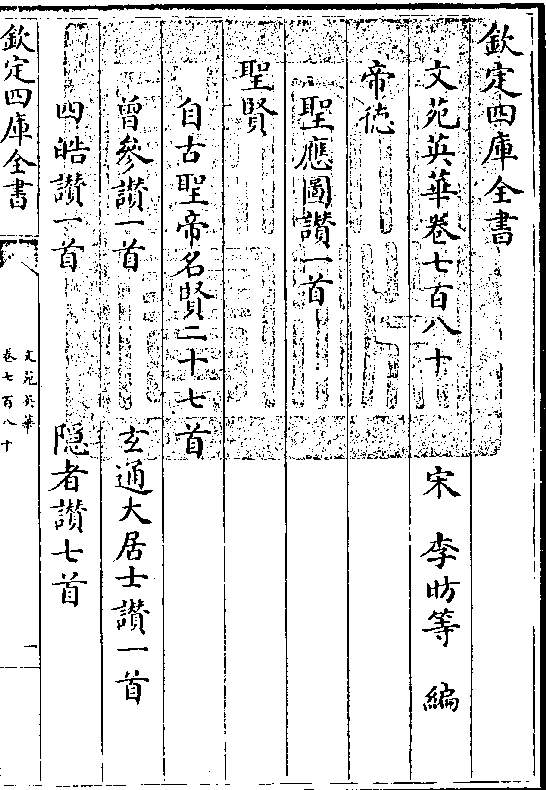 欽定四庫全書
文苑英華卷七百八十
宋 李昉等 編
帝德
聖應圖讃一首
聖賢
自古聖帝名賢二十七首
曾參讃一首 玄通大居士讃一首
四皓讃一首 隠者讃七首
欽定四庫全書
文苑英華
卷七百八十
一